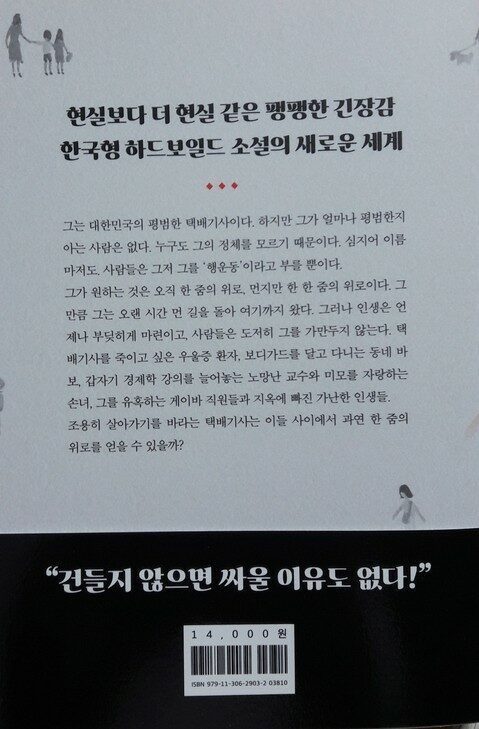 현실보다 더 현실 같은 팽팽한 긴장감
한국형 하드보일드 소설의 새로운 세계
그는 대한민국의 평범한 택배기사이다. 하지만 그가 얼마나 평범한지
아는 사람은 없다. 누구도 그의 정체를 모르기 때문이다. 심지어 이름
마저도. 사람들은 그저 그를 ‘행운동’이라고 부를 뿐이다.
그가 원하는 것은 오직 한 줌의 위로, 먼지만 한 한 줌의 위로이다. 그
만큼 그는 오랜 시간 먼 길을 돌아 여기까지 왔다. 그러나 인생은 언
제나 부딪히게 마련이고, 사람들은 도저히 그를 가만두지 않는다. 택
배기사를 죽이고 싶은 우울증 환자, 보디가드를 달고 다니는 동네 바
보, 갑자기 경제학 강의를 늘어놓는 노망난 교수와 미모를 자랑하는
손녀, 그를 유혹하는 게이바 직원들과 지옥에 빠진 가난한 인생들.
조용히 살아가기를 바라는 택배기사는 이들 사이에서 과연 한 줌의
위로를 얻을 수 있을까?
“건들지 않으면 싸울 이유도 없다!”
14,000원
ISBN 979-11-306-2903-2 03810